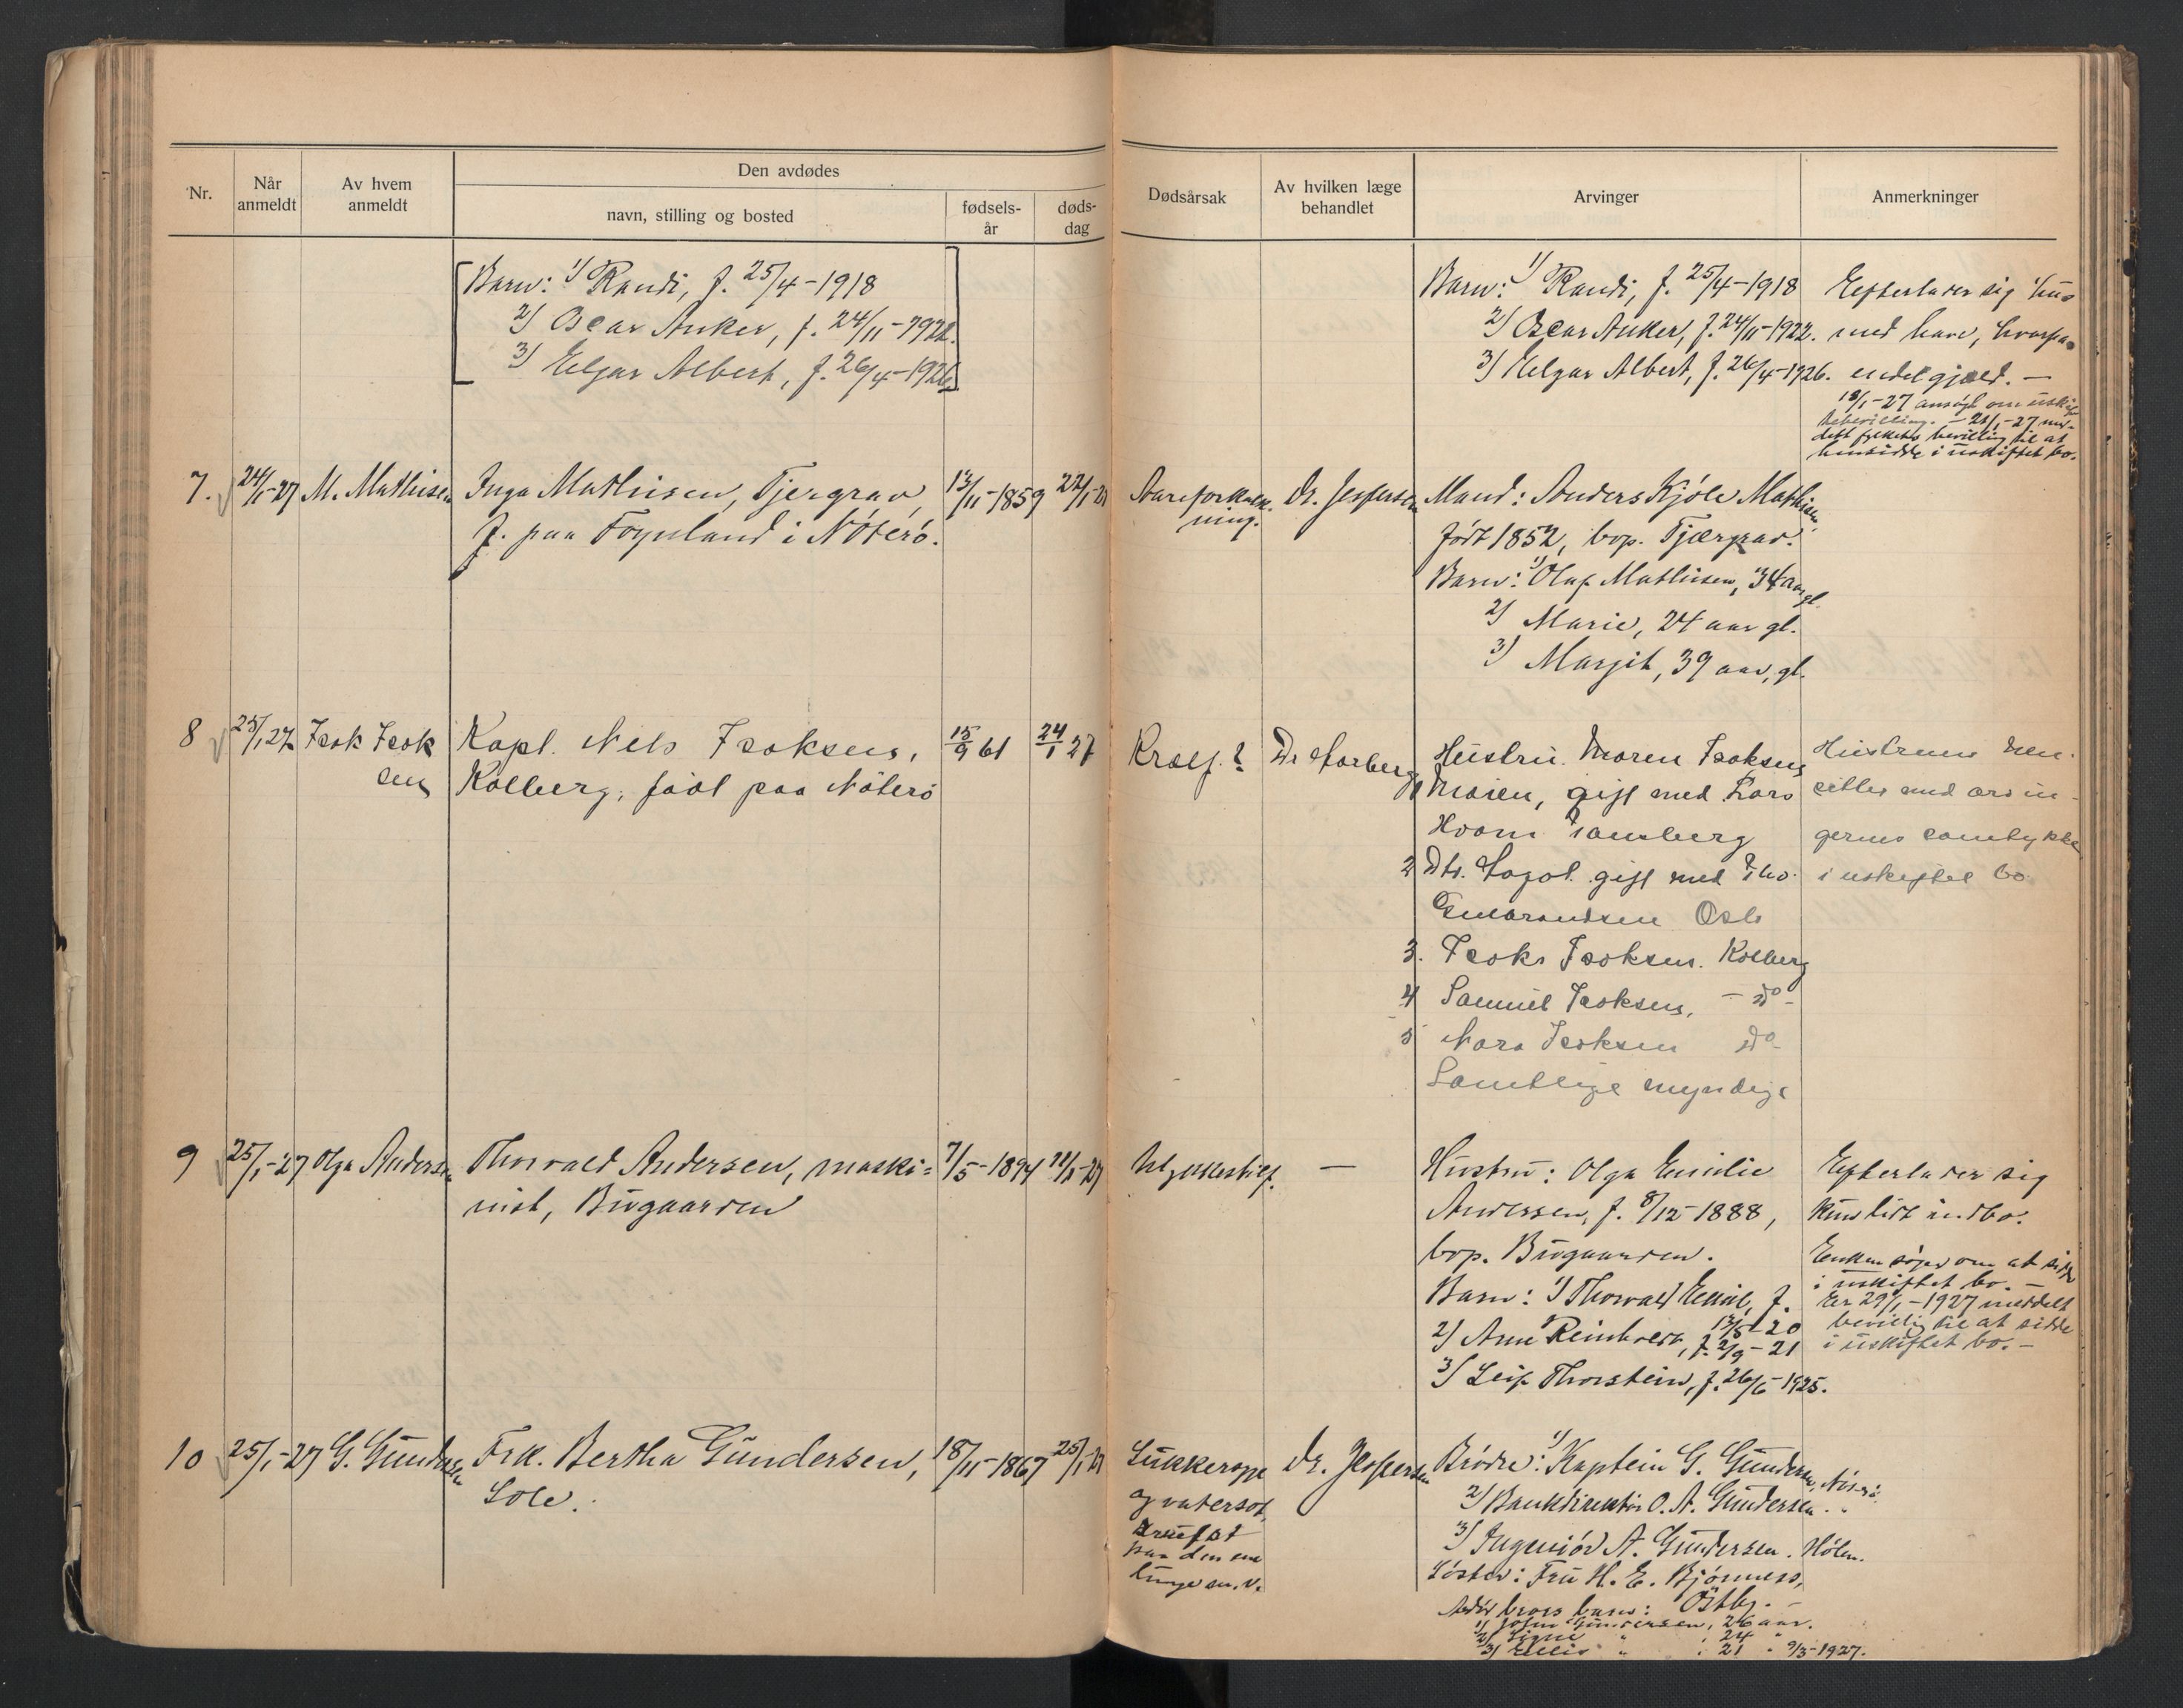 Nr.
Når anmeldt
Av hvem anmeldt
Den avdødes
navn, stilling og bosted
fødsels-år
døds-dag
Dødsårsak
Av hvilken læge behandlet
Arvinger
Anmerkninger
Barn: 1) Randi, f. 25/4-1918
2) Oscar Anker, f. 24/11-1922.
3) Helgar Albert, f. 26/4-1926
Barn: 1) Randi, f. 25/4-1918
2) Oscar Anker, f. 24/11-1922.
3) Helgar Albert, f. 26/4-1926.
Efterlater sig hus
med have, hvorpaa
endel gjæld. —
18/1-27 ansøgt om uskifte
bevilling. - 21/1-27 med-
delt fylkets bevilling til at
hensidde i uskiftet bo.
7. 24/1-27 M. Mathisen
Inga Mathisen, Tjergrav,
f. paa Føynland i Nøterø.
13/11-1859 22/1-27
Aareforkalk-
ning.
Dr. Jespersen
Mand: Anders Kjøle Mathisen,
født 1852, bop. Tjærgrav.
Barn: 1) Olaf Mathisen, 34 aar gl.
2) Marie, 24 aar gl.
3) Margit, 39 aar, gl.
8 25/1 27 Isak Isak
sen
Kapt. Nils Isaksen,
Kolberg, født paa Nøterø
15/9 61 24/1 27
Kræft?
Dr Aarberg
Hustru. Maren Isaksen
1 Maien, gift med Lars
Hvam Tønsberg
2 Dtr. gift med Tho.
Gulbrandsen Oslo
3. Isak Isaksen. Kolberg
4 Samuel Isaksen, - do -
5 Nara Isaksen do -
Samtlige myndige
Hustruen hen-
sitter med arvin-
gernes samtykke
i uskiftet bo
9 25/1-27 Olga Andersen
Thorvald Andersen, maski=
nist, Bugaarden
7/5-1894
—
Hustru: Olga Emilie
Andersen, f. 8/12-1888,
bop. Bugaarden.
Barn: 1) Thorvald Emil, f.
13/5-20
2) Arne Reinhardt, f. 2/9-21
3) Leif Thorstein, f. 26/5-1925.
Efterlater sig
kun lidt indbo.
Enken søger om at sidde
i uskiftet bo. —
Er 29/1-1927 meddelt
bevillig til at sidde
i uskiftet bo. —
10 25/1-27 G. Gundersen
Frk. Bertha Gundersen,
Sole.
18/11-1867 25/1-27
Sukkersyge
og vatersot,
paa den ene
lunge m. v.
Dr. Jespersen
Brødre: 1) Kaptein G. Gundersen,
2) Bankdirektør O. A. Gundersen "
3) Ingeniør A. Gundersen. Holm.
Søster: Fru H. E. Bjønness,
Østby. -
Avdød brors barn:
1) John Gundersen, 26 aar.
2) Signe " , 24 "
3) " , 21 " 9/3-1927.